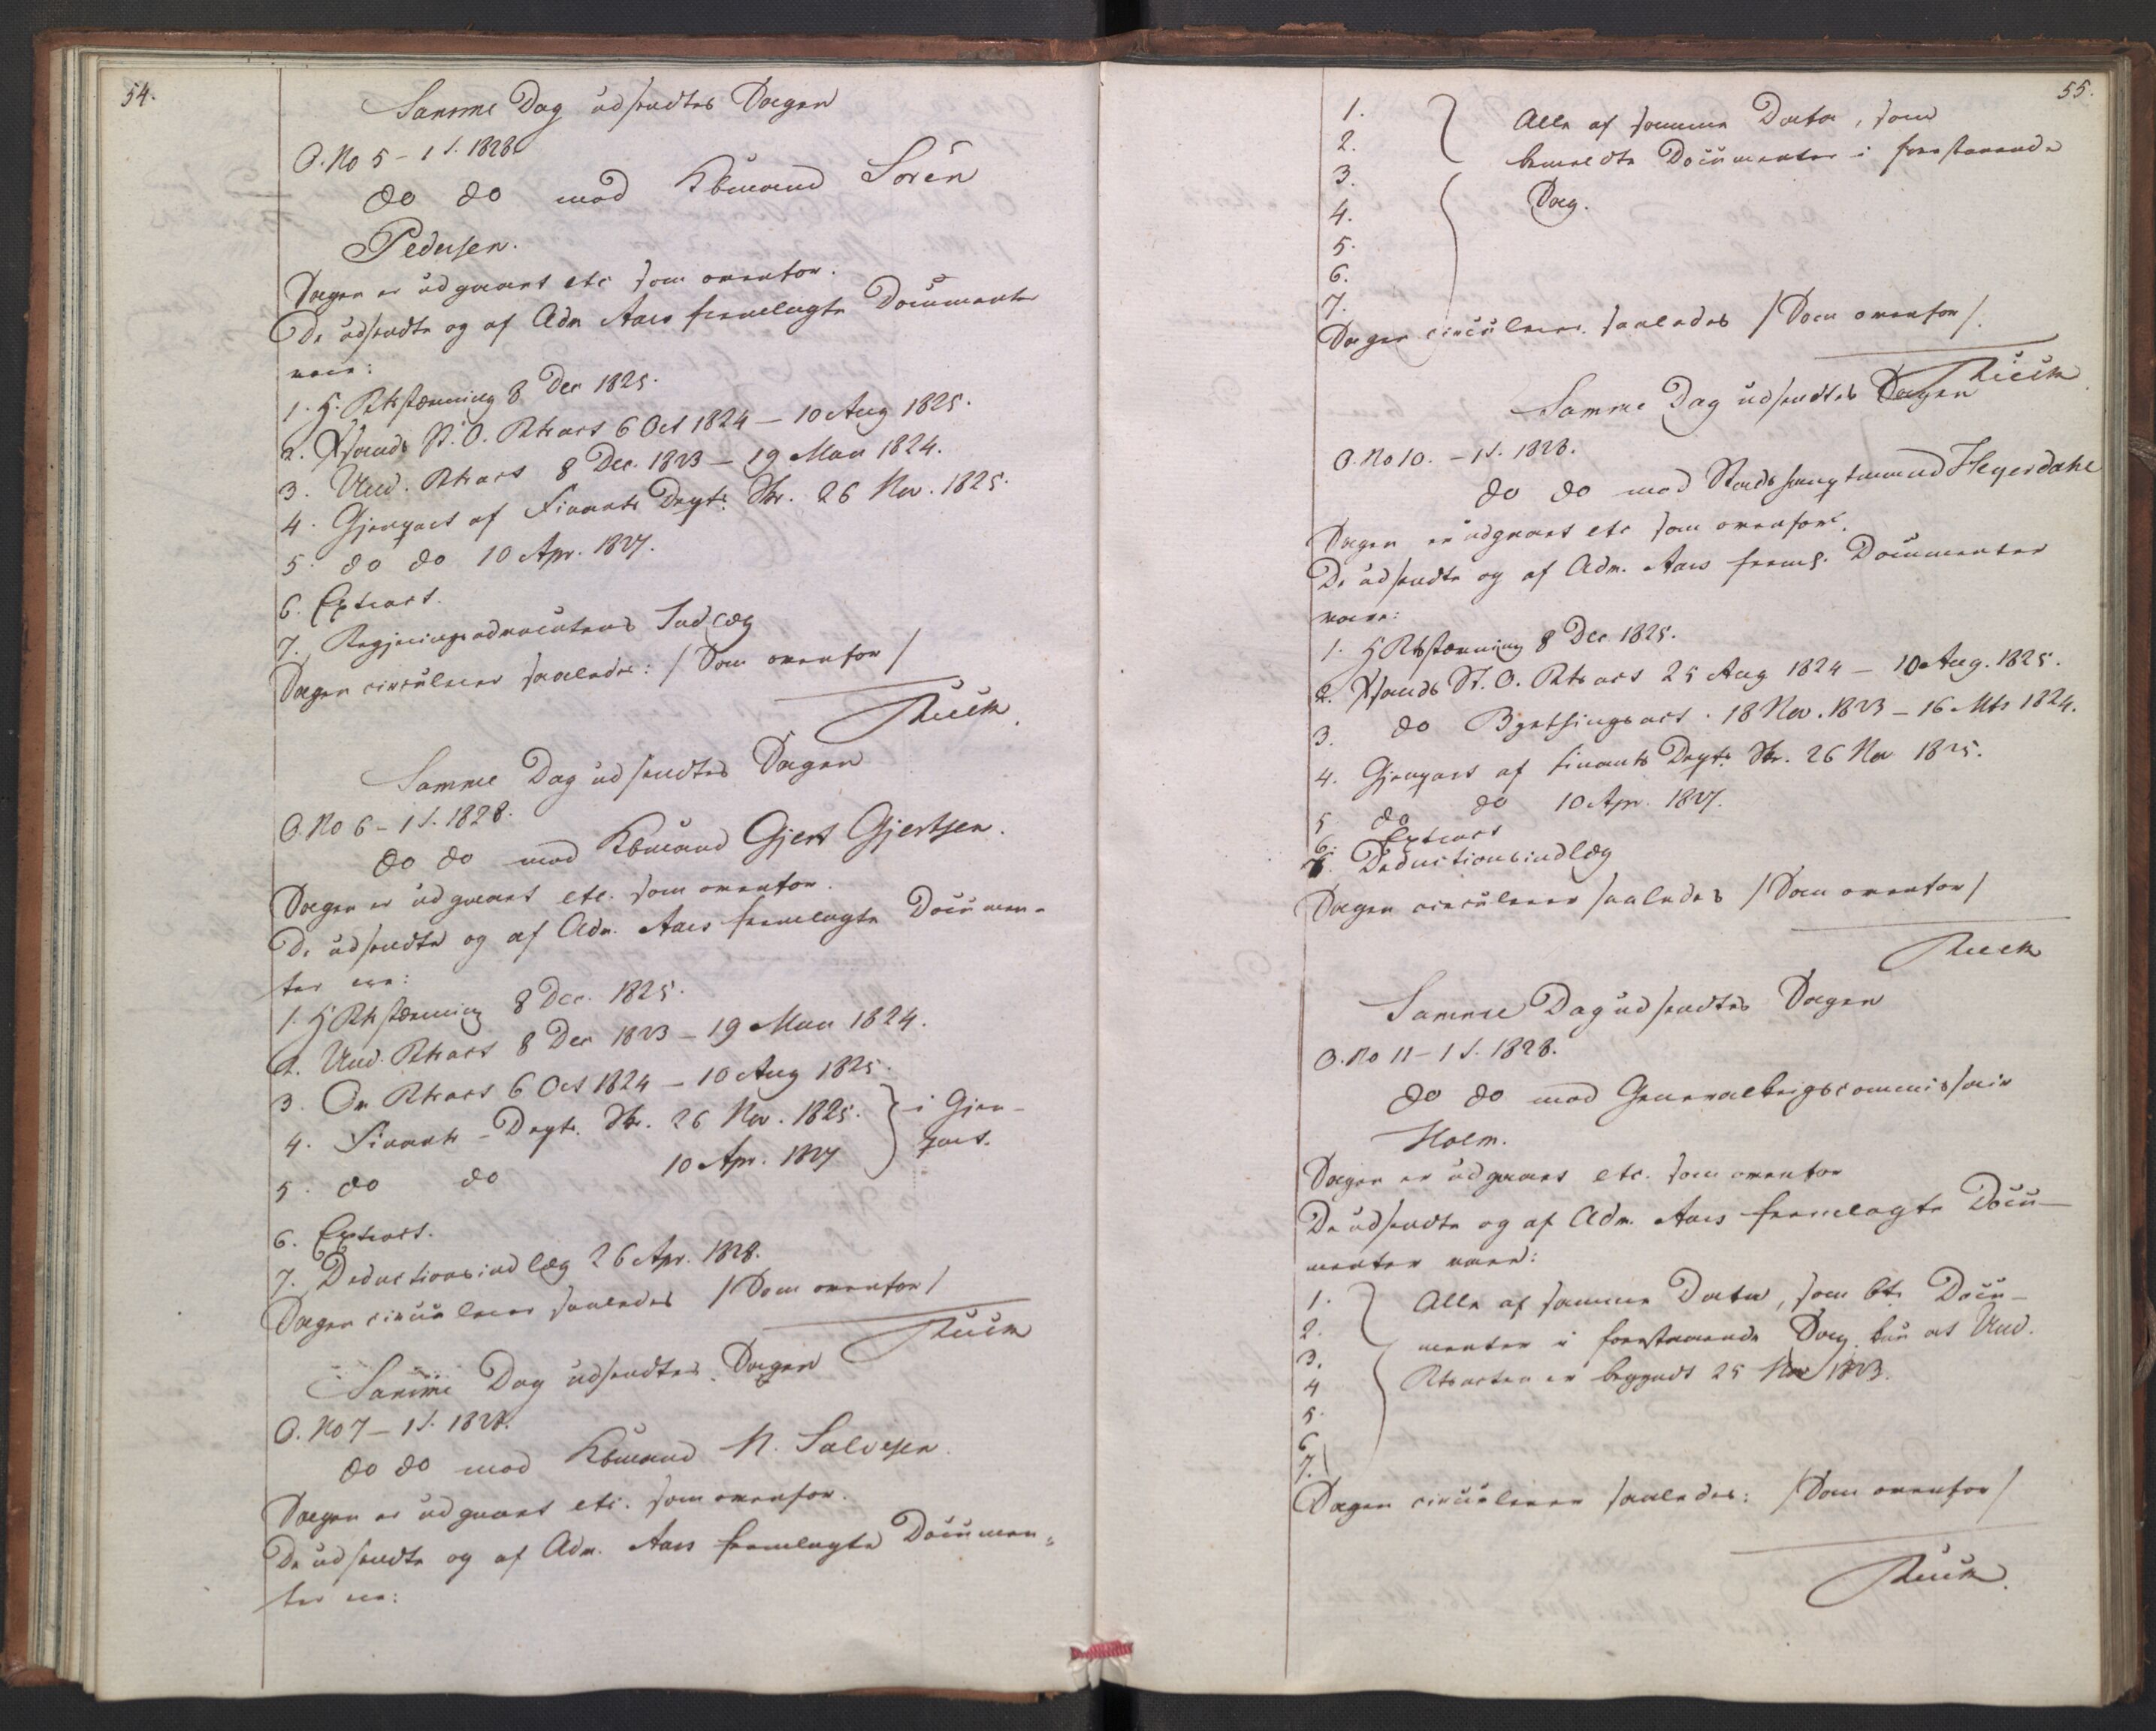 54.
Samme Dag udsendtes Sagen
O. No 5 – 1 S. 1828.
do do mod Kbmand Sören
Pedersen.
Sagen er udgaaet etc som ovenfor.
De udsendte og af Adv. Aars fremlagte Documenter
vare:
1. H. Rtsstævning 8 Dec 1825.
2. Xsands St. O. Rtsact 6 Oct 1824 – 10 Aug 1825.
3. Und. Rtsact 8 Dec. 1823 – 19 Mai 1824.
4. Gjenpart af Finants Dept. Skr. 26 Nov. 1825.
5. do do 10 Apr. 1827.
6. Extract.
7. Regjeringsadvocatens Indlæg
Sagen circulerer saaledes: / Som ovenfor /
Ruck
Samme Dag udsendtes Sagen
O. No 6 – 1 S. 1828.
do do mod Kbmand Gjert Gjertsen.
Sagen er udgaaet etc. som ovenfor.
De udsendte og af Adv. Aars fremlagte Documen-
ter ere:
1. H Rtsstævning 8 Dec. 1825.
2. Und. Rtsact 8 Dec 1823 – 19 Mai 1824.
3. Ov Rtsact 6 Oct 1824 – 10 Aug 1825.
4. Finants-Dept. Skr. 26 Nov. 1825. } i Gjen-
5. do do 10 Apr. 1827 part.
6. Extract.
7. Deductionsindlæg 26 Apr. 1828.
Sagen circulerer saaledes / Som ovenfor /
Ruck
Samme Dag udsendtes Sagen
O. No 7 – 1 S. 1828.
do do mod Kbmand N. Salvesen.
Sagen er udgaaet etc. som ovenfor.
De udsendte og af Adv. Aars fremlagte Documen-
ter ere:
55.
1. Alle af samme Data, som
2. bemeldte Documenter i forestaaende
3. Sag.
4.
5.
6.
7.
Sagen circulerer saaledes / Som ovenfor /.
Ruck
Samme Dag udsendtes Sagen
O. No 10. – 1 S. 1828.
do do mod Stadshauptmand Heyerdahl
Sagen er udgaaet etc som ovenfor.
De udsendte og af Adv. Aars freml. Documenter
vare:
1. H Rtsstævning 8 Dec 1825.
2. Xsands St. O. Rts act 25 Aug 1824 – 10 Aug. 1825.
3. do Bytthingsact 18 Nov. 1823 – 16 Mts 1824.
4. Gjenpart af Finants Dept. Skr. 26 Nov 1825.
5 do do 10 Apr. 1827.
6. Extract
7. Deductionsindlæg
Sagen circulerer saaledes / Som ovenfor /
Ruck
Samme Dag udsendtes Sagen
O. No 11 – 1 S. 1828.
do do mod Generalkrigscommissair
Holm.
Sagen er udgaaet etc. som ovenfor
De udsendte og af Adv. Aars fremlagte Docu-
menter vare:
1. Alle af samme Data, som bte Docu-
2. menter i forestaaende Sag kun at Und.
3. Rtsacten er begyndt 25 Nov 1823.
4
5.
6
7.
Sagen circulerer saaledes: / Som ovenfor /
Ruck.